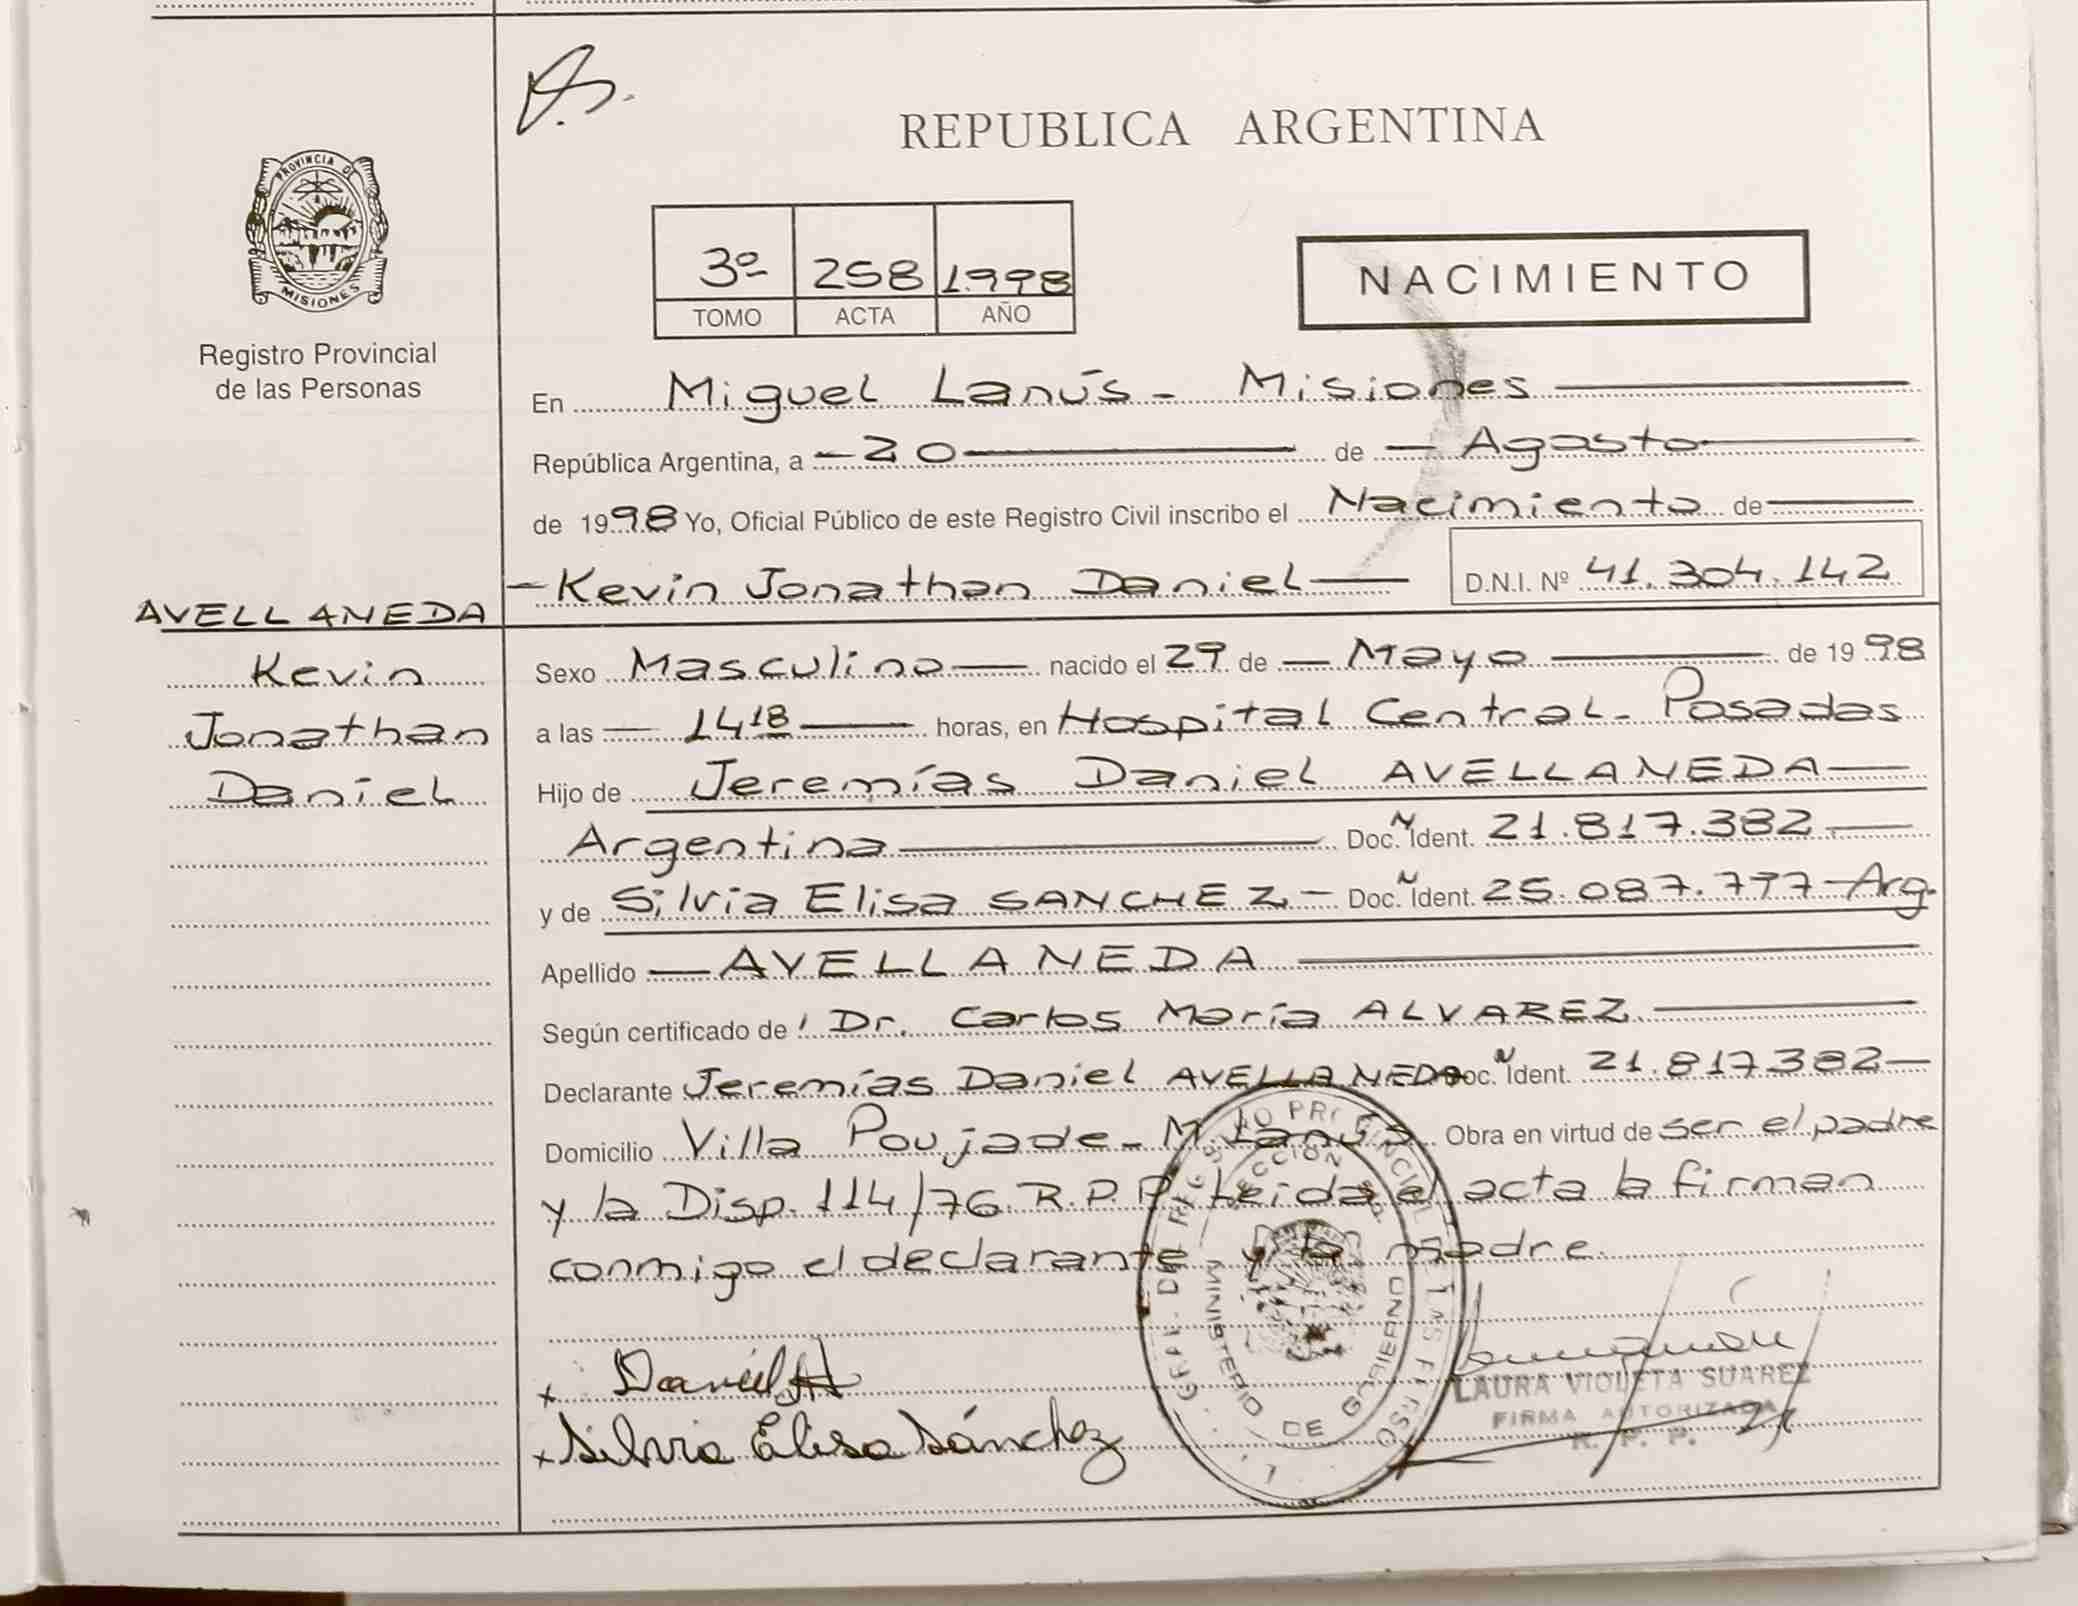 REPUBLICA ARGENTINA
PROVINCIA DE
MISIONES
Registro Provincial
de las Personas
3º 258 1.998
TOMO ACTA AÑO
NACIMIENTO
En Miguel Lanús - Misiones
República Argentina, a - 20 de - Agosto
de 1998 Yo, Oficial Público de este Registro Civil inscribo el Nacimiento de
- Kevin Jonathan Daniel D.N.I. Nº 41.304.142
AVELLANEDA
Kevin
Jonathan
Daniel
Sexo Masculino nacido el 29 de - Mayo de 1998
a las - 14 18 horas, en Hospital Central - Posadas
Hijo de Jeremías Daniel AVELLANEDA
Argentina Doc. N Ident. 21.817.382
y de Silvia Elisa SANCHEZ - Doc. N Ident. 25.087.797 - Arg.
Apellido - AVELLANEDA
Según certificado de Dr. Carlos María ALVAREZ
Declarante Jeremías Daniel AVELLANEDA Doc. N Ident. 21.817.382
Domicilio Villa Poujade - M. Lanús Obra en virtud de ser el padre
y la Disp. 114/76 R.P.P. Leída el acta la firman
conmigo el declarante y la madre.
x Daniel A
x Silvia Elisa Sánchez
MINISTERIO DE GOBIERNO
LAURA VIOLETA SUAREZ
FIRMA AUTORIZADA
R. P. P.